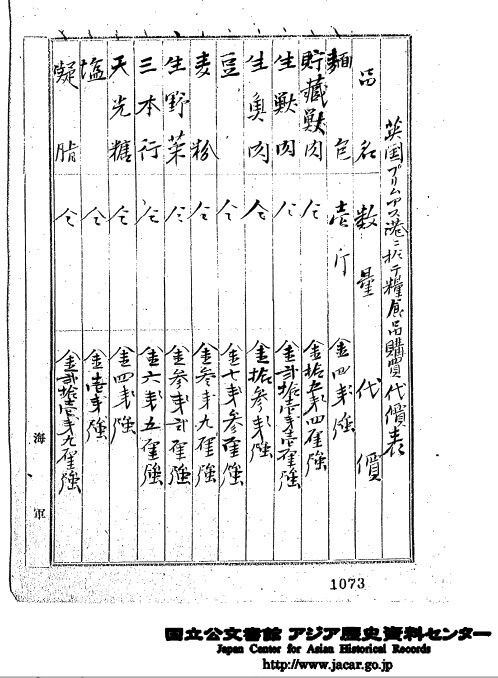 英国プリムアス港ニ於テ糧食品購買代價表
品名 数量 代價
麺包 壱斤 金四銭強
貯藏獣肉 仝 金拾五銭四厘強
生獣肉 仝 金弐拾壱銭壱厘強
生魚肉 仝 金拾参銭強
豆 仝 金七銭参厘強
麦粉 仝 金参銭九厘強
生野菜 仝 金参銭弐厘強
三本行 仝 金六銭五厘強
天光糖 仝 金四銭強
塩 仝 金壱銭強
凝脂 仝 金弐拾壱銭九厘強
海軍
1073
国立公文書館 アジア歴史資料センター
Japan Center for Asian Historical Records
http://www.jacar.go.jp